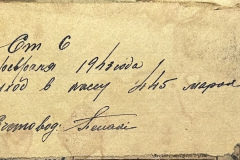 От 6
февраля 1943 года
доход в кассу 445 марок
Счетовод: